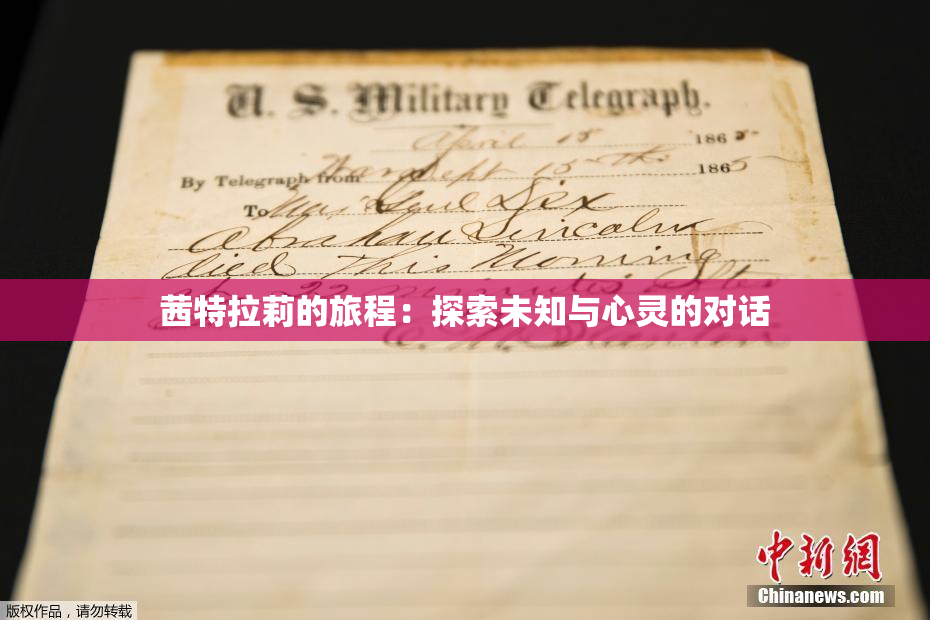 U. S. Military Telegraph.
April 15 1865
By Telegraph from War Dept 15th 1865
To Maj Genl Dix
Abraham Lincoln
died This Morning
at 22 minutes after
茜特拉莉的旅程：探索未知与心灵的对话
E. M. Stanton
中新网
Chinanews.com
版权作品，请勿转载